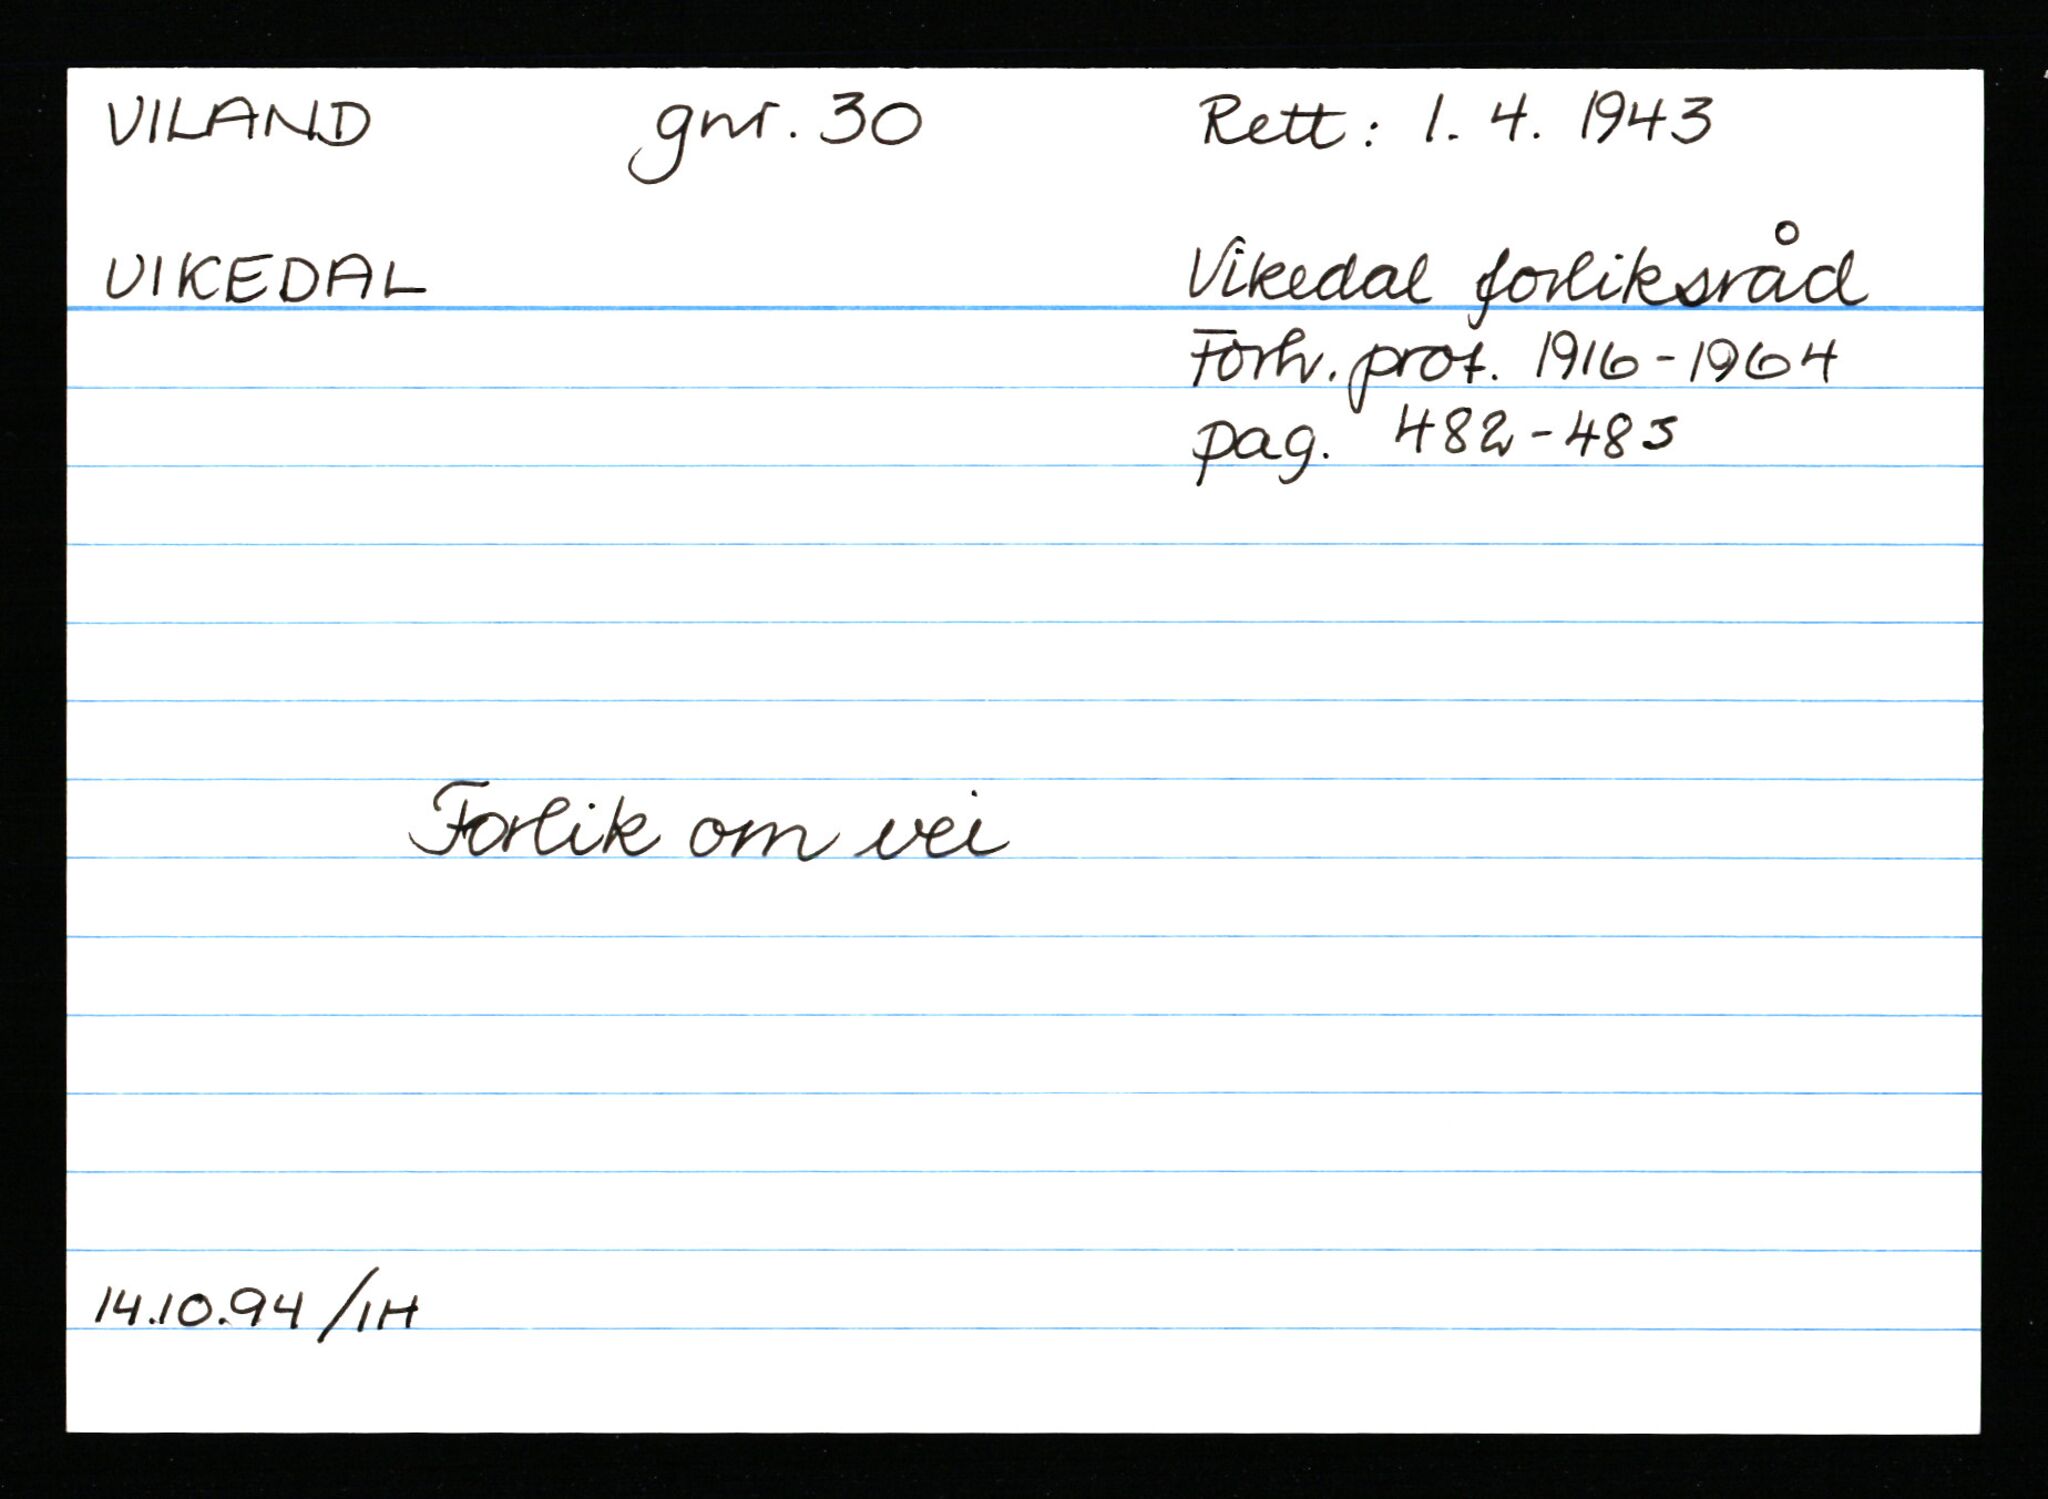 VILAND gnr. 30 Rett: 1. 4. 1943
VIKEDAL Vikedal forliksråd
Forh. prot. 1916-1964
pag. 482-483
Forlik om vei
14.10.94/IH